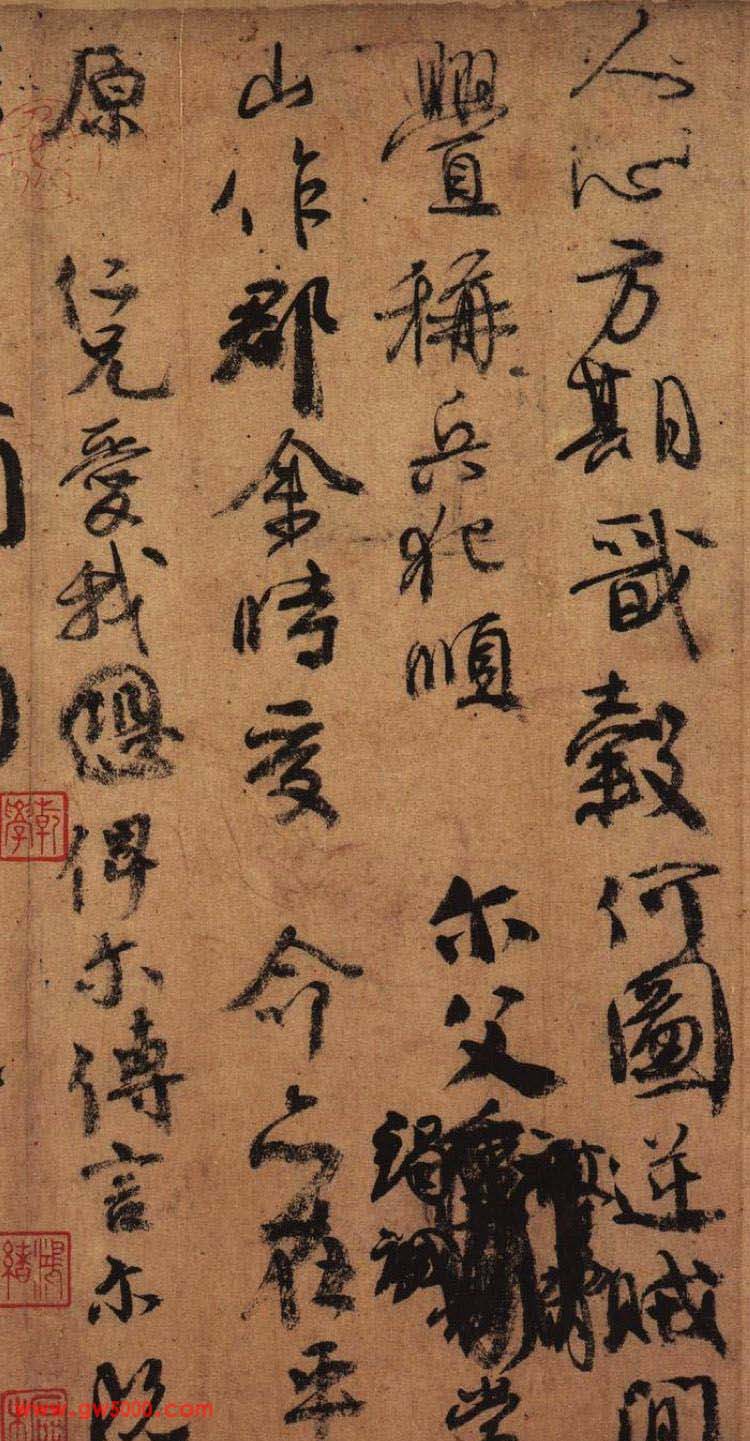 人心方期戩穀何圖逆賊間
釁稱兵犯順 尔父竭誠常
山作郡余時受 命亦在平
原 仁兄愛我恐俾尔傳言尔既
乾學
鴻緒
www.gw5000.com